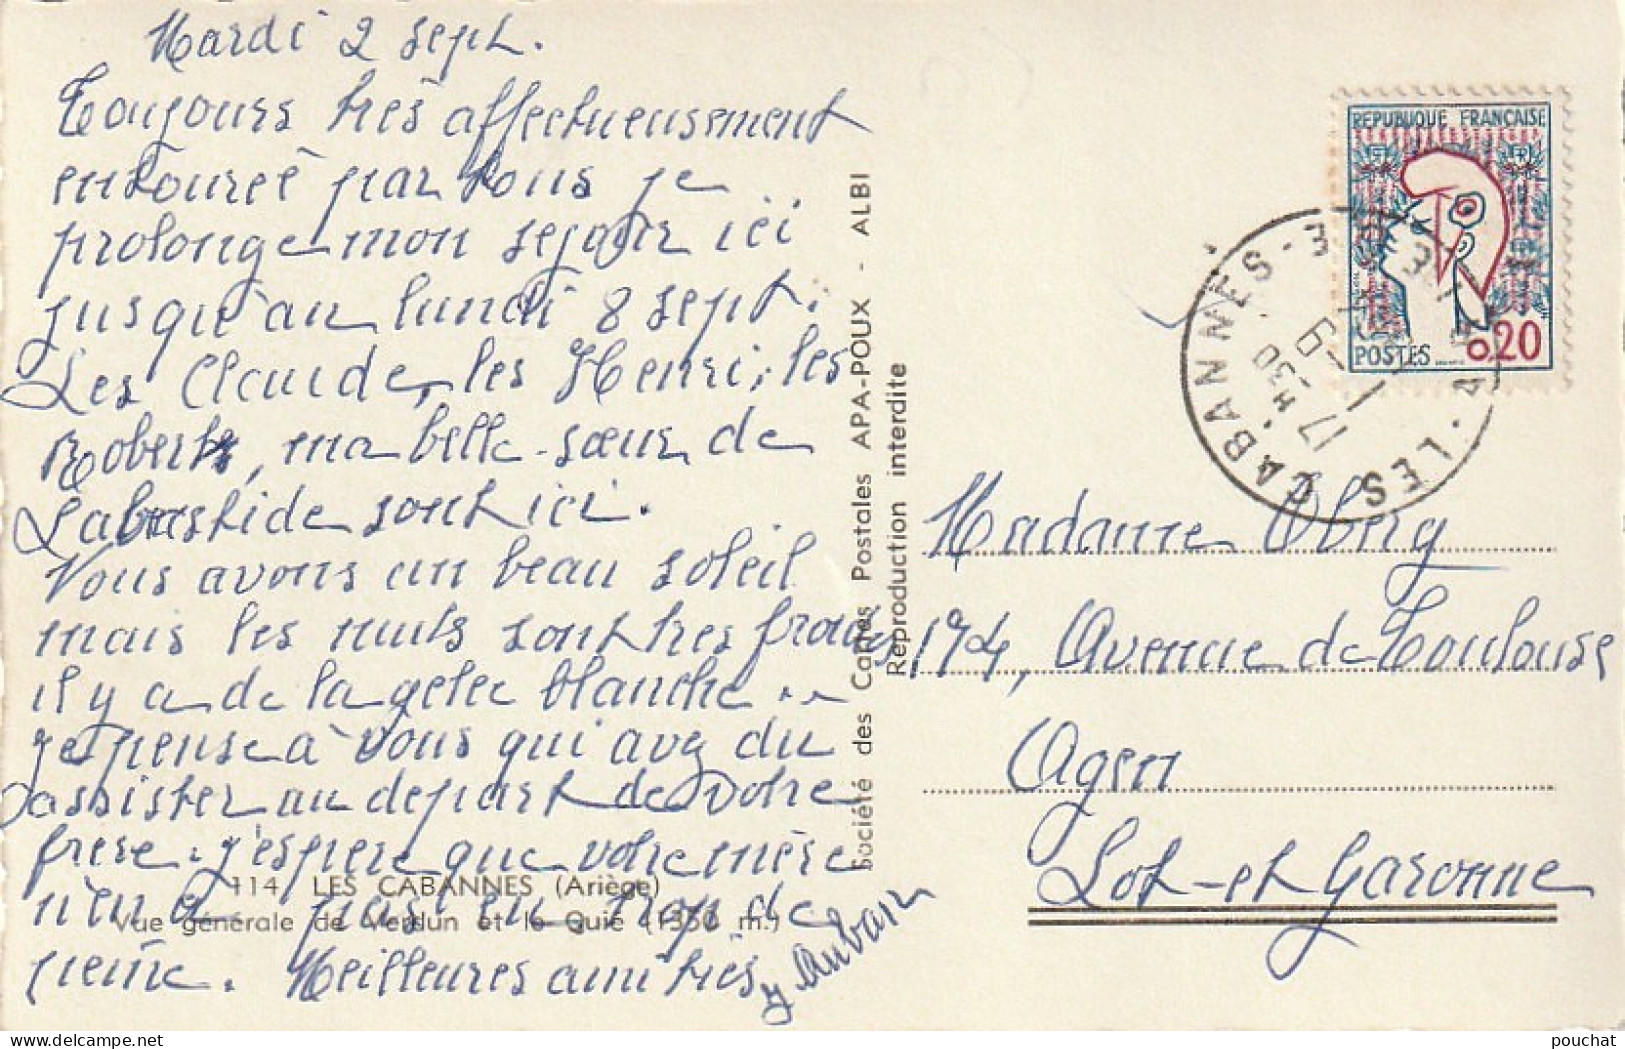 Mardi 2 sept.
Toujours très affectueusement
entourée par tous je
prolonge mon sejour ici
jusqu'au lundi 8 sept.
Les Claude, les Henri, les
Robert, ma belle-sœur de
Labastide sont ici.
Nous avons un beau soleil
mais les nuits sont tres froides
il y a de la gelee blanche ..
je pense à vous qui avez du
assister au depart de votre
frere. j'espere que votre mère
n'en a pas eu trop de
peine. Meilleures amitiés
y Aubarn
114 LES CABANNES (Ariège)
Vue générale de Verdun et le Quié (1350 m.)
Société des Cartes Postales APA-POUX - ALBI
Reproduction interdite
REPUBLIQUE FRANÇAISE
POSTES 0,20
LES CABANNES
17 H 30
Madame Oberg
174, Avenue de Toulouse
Agen
Lot-et Garonne
pouchat